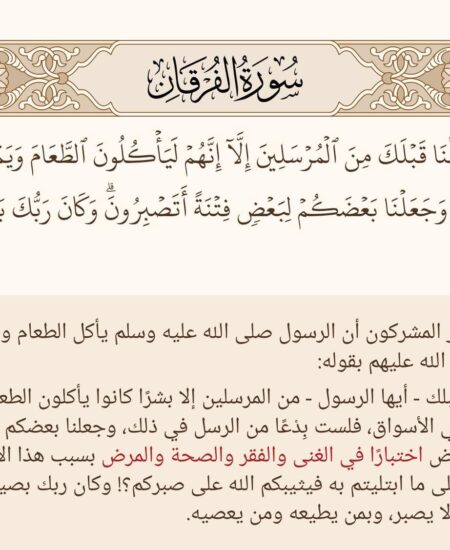 سُورَةُ الْفُرْقَانِ
قَبْلَكَ مِنَ ٱلْمُرْسَلِينَ إِلَّآ إِنَّهُمْ لَيَأْكُلُونَ ٱلطَّعَامَ
وَجَعَلْنَا بَعْضَكُمْ لِبَعْضٍ فِتْنَةً أَتَصْبِرُونَۗ وَكَانَ رَبُّكَ
المشركون أن الرسول صلى الله عليه وسلم يأكل الطعام
الله عليهم بقوله:
- أيها الرسول - من المرسلين إلا بشرًا كانوا يأكلون
الأسواق، فلست بِدعًا من الرسل في ذلك، وجعلنا بعضكم
اختبارًا في الغنى والفقر والصحة والمرض بسبب هذا
ما ابتليتم به فيثيبكم الله على صبركم؟! وكان ربك
لا يصبر، وبمن يطيعه ومن يعصيه.